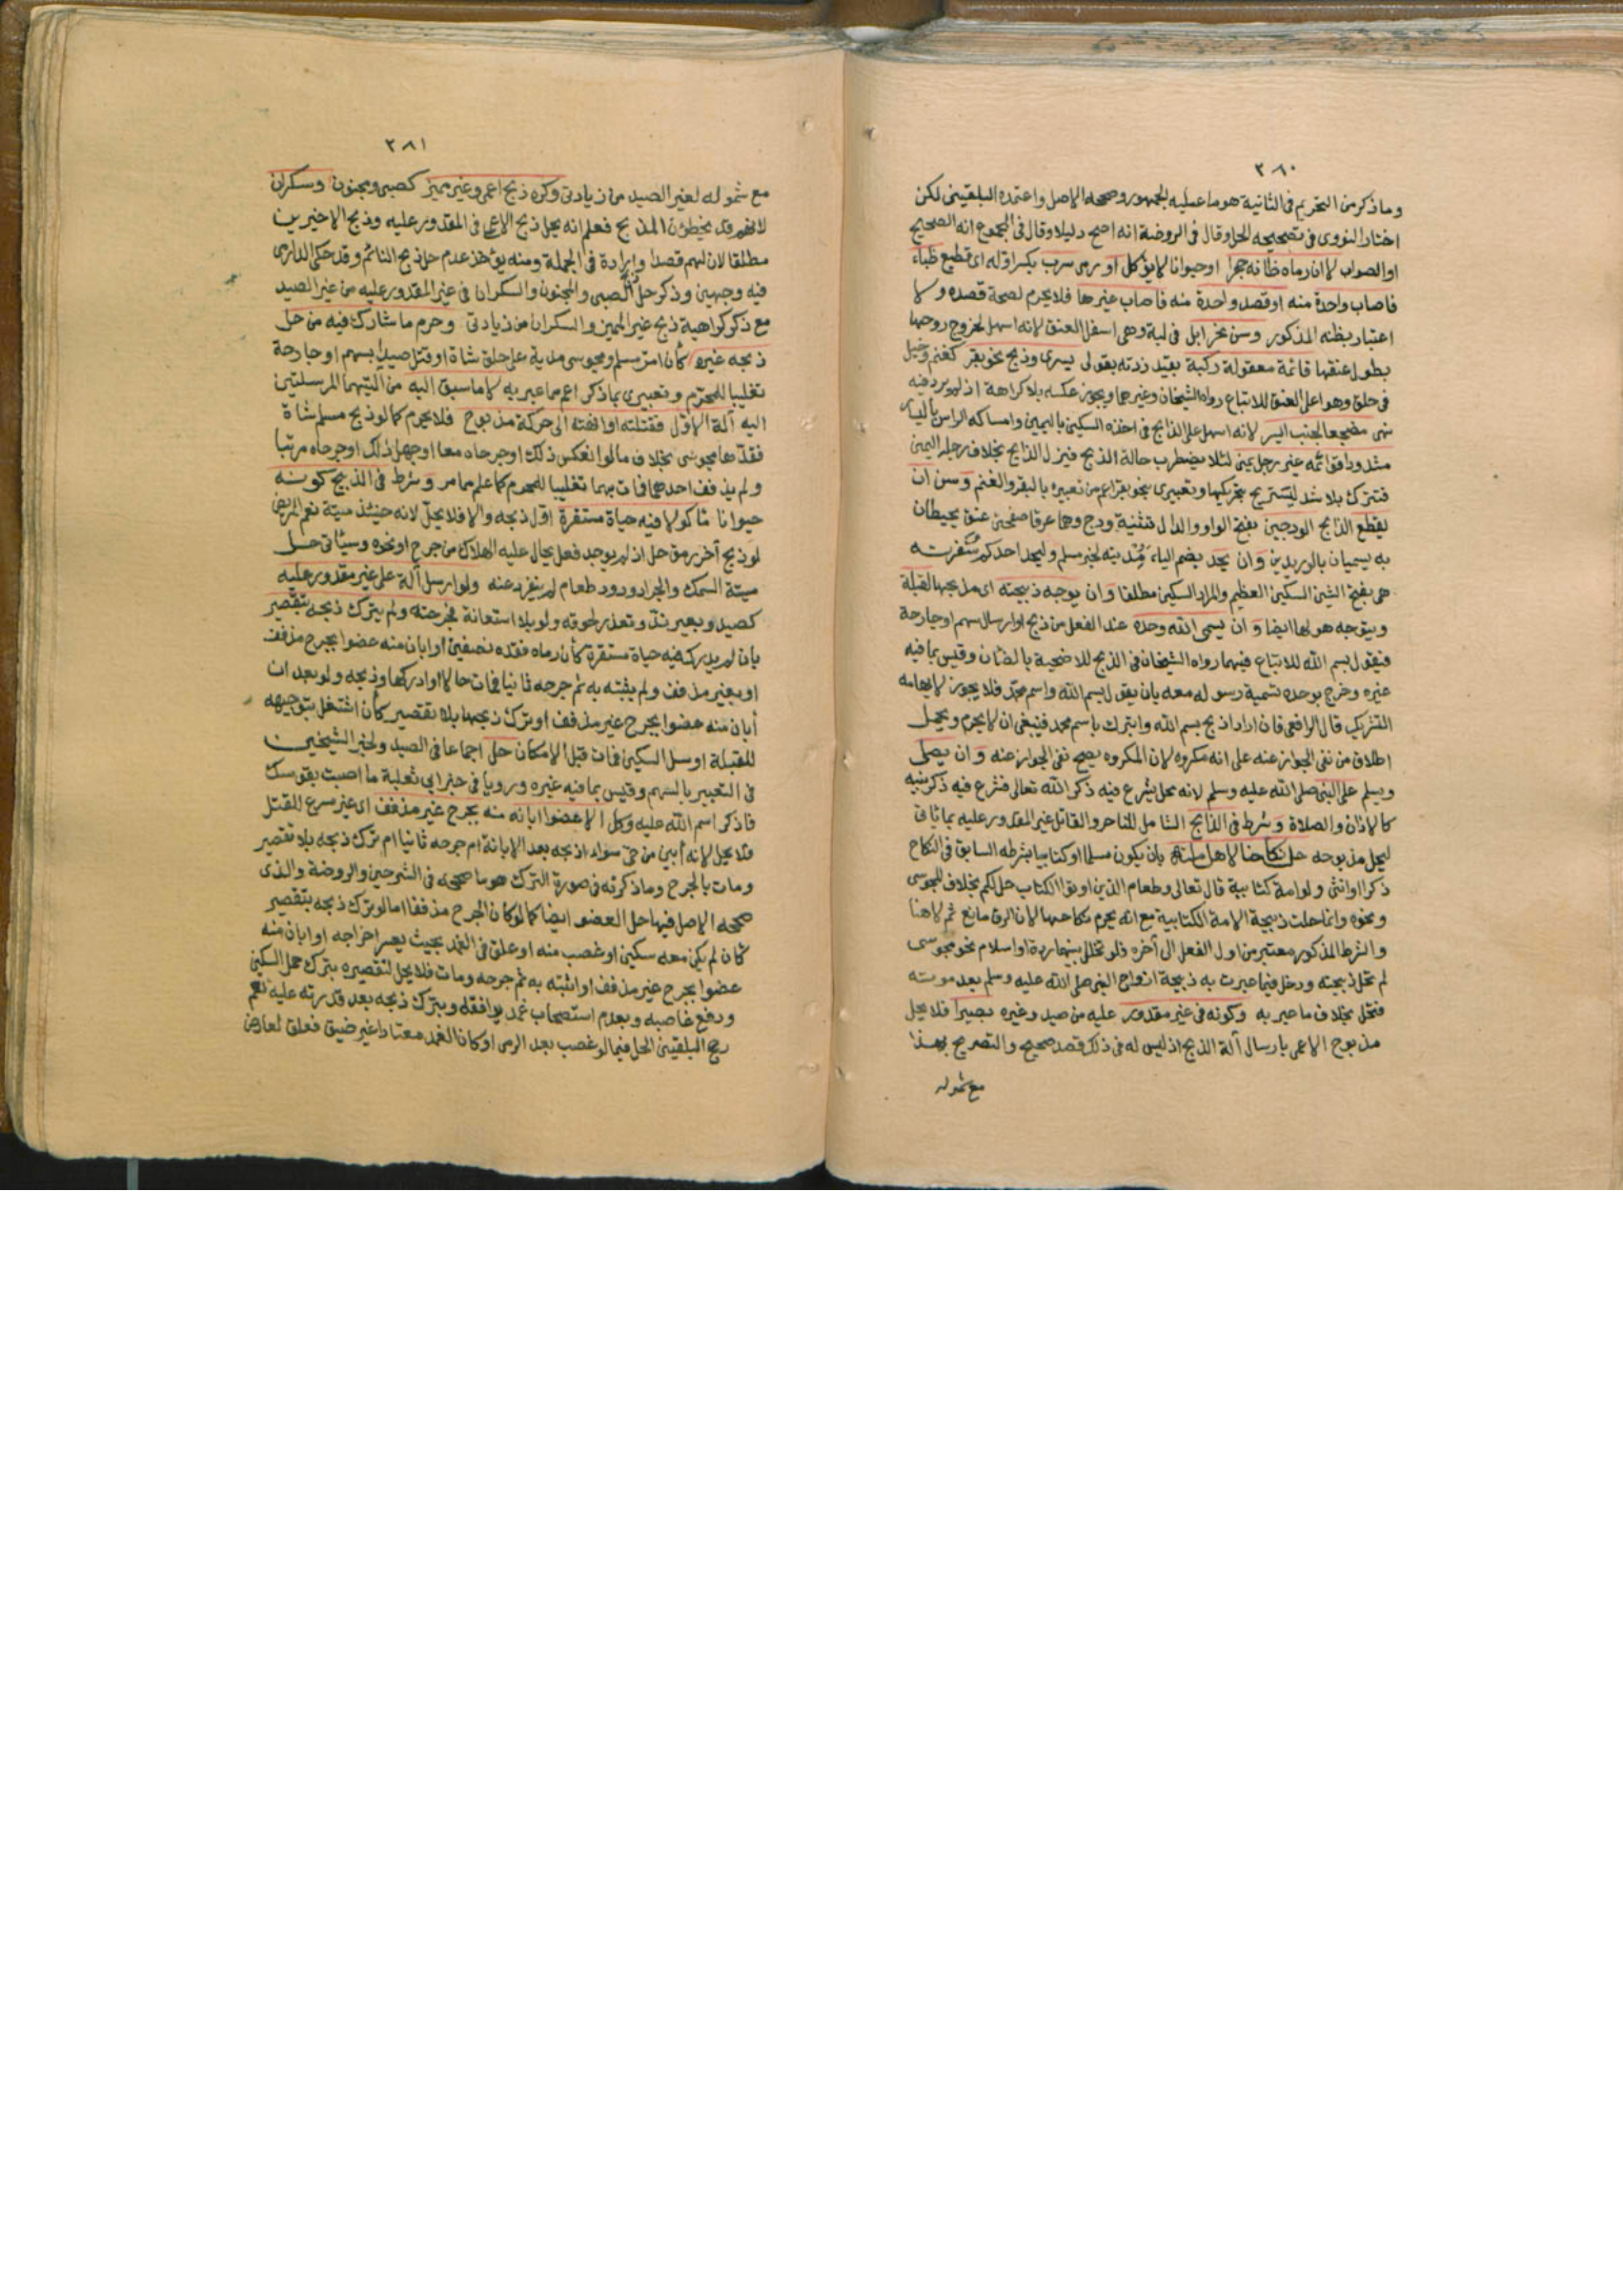 ٣٨٠
وما ذكر من التحريم فى الثانية هو ما عليه الجمهور وصححه الاصل واعتمده البلقينى لكن
اختار النووى فى تصحيحه الحل وقال فى الروضة انه اصح دليلا وقال فى المجموع انه الصحيح
او الصواب لا ان رماه ظانه حجرا او حيوانا لا يؤكل او رمى سرب بكسر اوله اى قطيع ظباء
فاصاب واحدة منه او قصد واحدة منه فاصاب غيرها فلا يحرم لصحة قصده ولا
اعتبار بظنه المذكور وسن نحر ابل فى لبة وهى اسفل العنق لانه اسهل لخروج روحها
بطول عنقها قائمة معقولة ركبة بقيد زدته بقولى يسرى وذبح نحو بقر كغنم وخيل
فى حلق وهو اعلى العنق للاتباع رواه الشيخان وغيرهما ويجوز عكسه بلا كراهة اذ لم يرد فيه
نهى مضجعا لجنب ايسر لانه اسهل على الذابح فى اخذه السكين باليمين وامساكه الراس باليسار
مشدودا قوائمه غير رجل يمنى لئلا يضطرب حالة الذبح فيزل الذابح بخلاف رجله اليمنى
فتترك بلا شد ليستريح بتحريكها وتعبيرى بنحو بقر اعم من تعبيره بالبقر والغنم وسن ان
يقطع الذابح الودجين بفتح الواو والدال تثنية ودج وهما عرقا صفحتى عنق يحيطان
به يسميان بالوريدين وان يحد بضم الياء مديته لخبر مسلم وليحد احدكم شفرته
هى بفتح الشين السكين العظيم والمراد السكين مطلقا وان يوجه ذبيحته اى مذبحها لقبلة
ويتوجه هو لها ايضا وان يسمى الله وحده عند الفعل من ذبح او ارسال سهم او جارحة
فيقول بسم الله للاتباع فيهما رواه الشيخان فى الذبح للاضحية بالضان وقيس بما فيه
غيره وخرج بوحده تسمية رسوله معه بان يقول بسم الله واسم محمد فلا يجوز لايهامه
التشريك قال الرافعى فان اراد اذبح بسم الله واتبرك باسم محمد فينبغى ان لا يحرم ويحمل
اطلاق من نفى الجواز عنه على انه مكروه لان المكروه يصح نفى الجواز عنه وان يصلى
ويسلم على النبى صلى الله عليه وسلم لانه محل يشرع فيه ذكر الله تعالى فشرع فيه ذكر نبيه
كالاذان والصلاة وشرط فى الذابح الشامل للناحر والقاتل غير المقدور عليه بما ياتى
ليحل مذبوحه حل نكاحنا لاهل ملته بان يكون مسلما او كتابيا بشرطه السابق فى النكاح
ذكرا او انثى ولو امة كتابية قال تعالى وطعام الذين اوتوا الكتاب حل لكم بخلاف المجوسى
ونحوه وانما حلت ذبيحة الامة الكتابية مع انه يحرم نكاحها لان الرق مانع ثم لا هنا
والشرط المذكور معتبر من اول الفعل الى آخره فلو تخلل بينهما ردة او اسلام نحو مجوسى
لم تحل ذبيحته ودخل فيما عبرت به ذبيحة ازواج النبى صلى الله عليه وسلم بعد موته
فتحل بخلاف ما عبر به وكونه فى غير مقدور عليه من صيد وغيره بصيرا فلا يحل
مذبوح الاعمى بارسال آلة الذبح اذ ليس له فى ذلك قصد صحيح والتصريح بهذا
مع شموله
٣٨١
مع شموله لغير الصيد من زيادتى وكره ذبح اعمى وغير مميز كصبى ومجنون وسكران
لانهم قد يخطئون المذبح فعلم انه يحل ذبح الاعمى فى المقدور عليه وذبح الاخيرين
مطلقا لان لهم قصدا وارادة فى الجملة ومنه يؤخذ عدم حل ذبح النائم وقد حكى الدارمى
فيه وجهين وذكر حل الصبى والمجنون والسكران فى غير المقدور عليه من غير الصيد
مع ذكر كراهية ذبح غير المميز والسكران من زيادتى وحرم ما شارك فيه من حل
ذبحه غيره كأن امر مسلم ومجوسى مدية على حلق شاة او قتل صيدا بسهم او جارحة
تغليبا للمحرم وتعبيرى بما ذكر اعم مما عبر به لا ما سبق اليه من آلتيهما المرسلتين
اليه آلة الاول فقتلته او انهته الى حركة مذبوح فلا يحرم كما لو ذبح مسلم شاة
فقدها مجوسى بخلاف ما لو انعكس ذلك او جرحاه معا او جهل ذلك او جرحاه مرتبا
ولم يذفف احدهما فمات بهما تغليبا للمحرم كما علم مما مر وشرط فى الذبيح كونه
حيوانا مأكولا فيه حياة مستقرة اول ذبحه والا فلا يحل لانه حينئذ ميتة نعم المريض
لو ذبح آخر رمق حل اذ لم يوجد فعل يحال عليه الهلاك من جرح او نحوه وسيأتى حل
ميتة السمك والجراد ودود طعام لم ينفرد عنه ولو ارسل آلة على غير مقدور عليه
كصيد وبعير ند وتعذر لحوقه ولو بلا استعانة فجرحته ولم يترك ذبحه بتقصير
بان لم يدرك فيه حياة مستقرة كأن رماه فقده نصفين او ابان منه عضوا بجرح مذفف
او بغير مذفف ولم يثبته به ثم جرحه ثانيا فمات حالا او ادركها وذبحه ولو بعد ان
أبان منه عضوا بجرح غير مذفف او ترك ذبحها بلا تقصير كأن اشتغل بتوجيهه
للقبلة او سل السكين فمات قبل الامكان حل اجماعا فى الصيد ولخبر الشيخين
فى التعبير بالسهم وقيس بما فيه غيره ورويا فى خبر ابى ثعلبة ما اصبت بقوسك
فاذكر اسم الله عليه وكل الا عضوا ابانه منه بجرح غير مذفف اى غير مسرع للقتل
فلا يحل لانه أبين من حى سواء اذبحه بعد الابانة ام جرحه ثانيا ام ترك ذبحه بلا تقصير
ومات بالجرح وما ذكرته فى صورة الترك هو ما صححه فى الشرحين والروضة والذى
صححه الاصل فيها حل العضو ايضا كما لو كان الجرح مذففا اما لو ترك ذبحه بتقصير
كأن لم يكن معه سكين او غصب منه او علق فى الغمد بحيث يعسر اخراجه او ابان منه
عضوا بجرح غير مذفف او اثبته به ثم جرحه ومات فلا يحل لتقصيره بترك حمل السكين
ودفع غاصبه وبعدم استصحاب غمد يوافقه وبترك ذبحه بعد قدرته عليه نعم
رجح البلقينى الحل فيما لو غصب بعد الرمى او كان الغمد معتادا غير ضيق فعلق لعارض